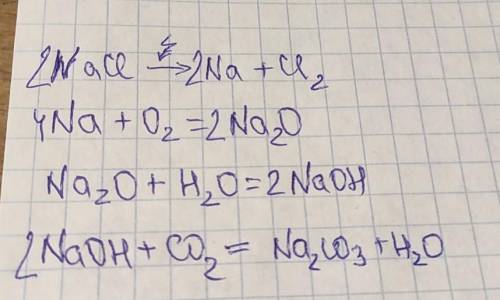 2NaCl ⚡→ 2Na + Cl₂
4Na + O₂ = 2Na₂O
Na₂O + H₂O = 2NaOH
2NaOH + CO₂ = Na₂CO₃ + H₂O